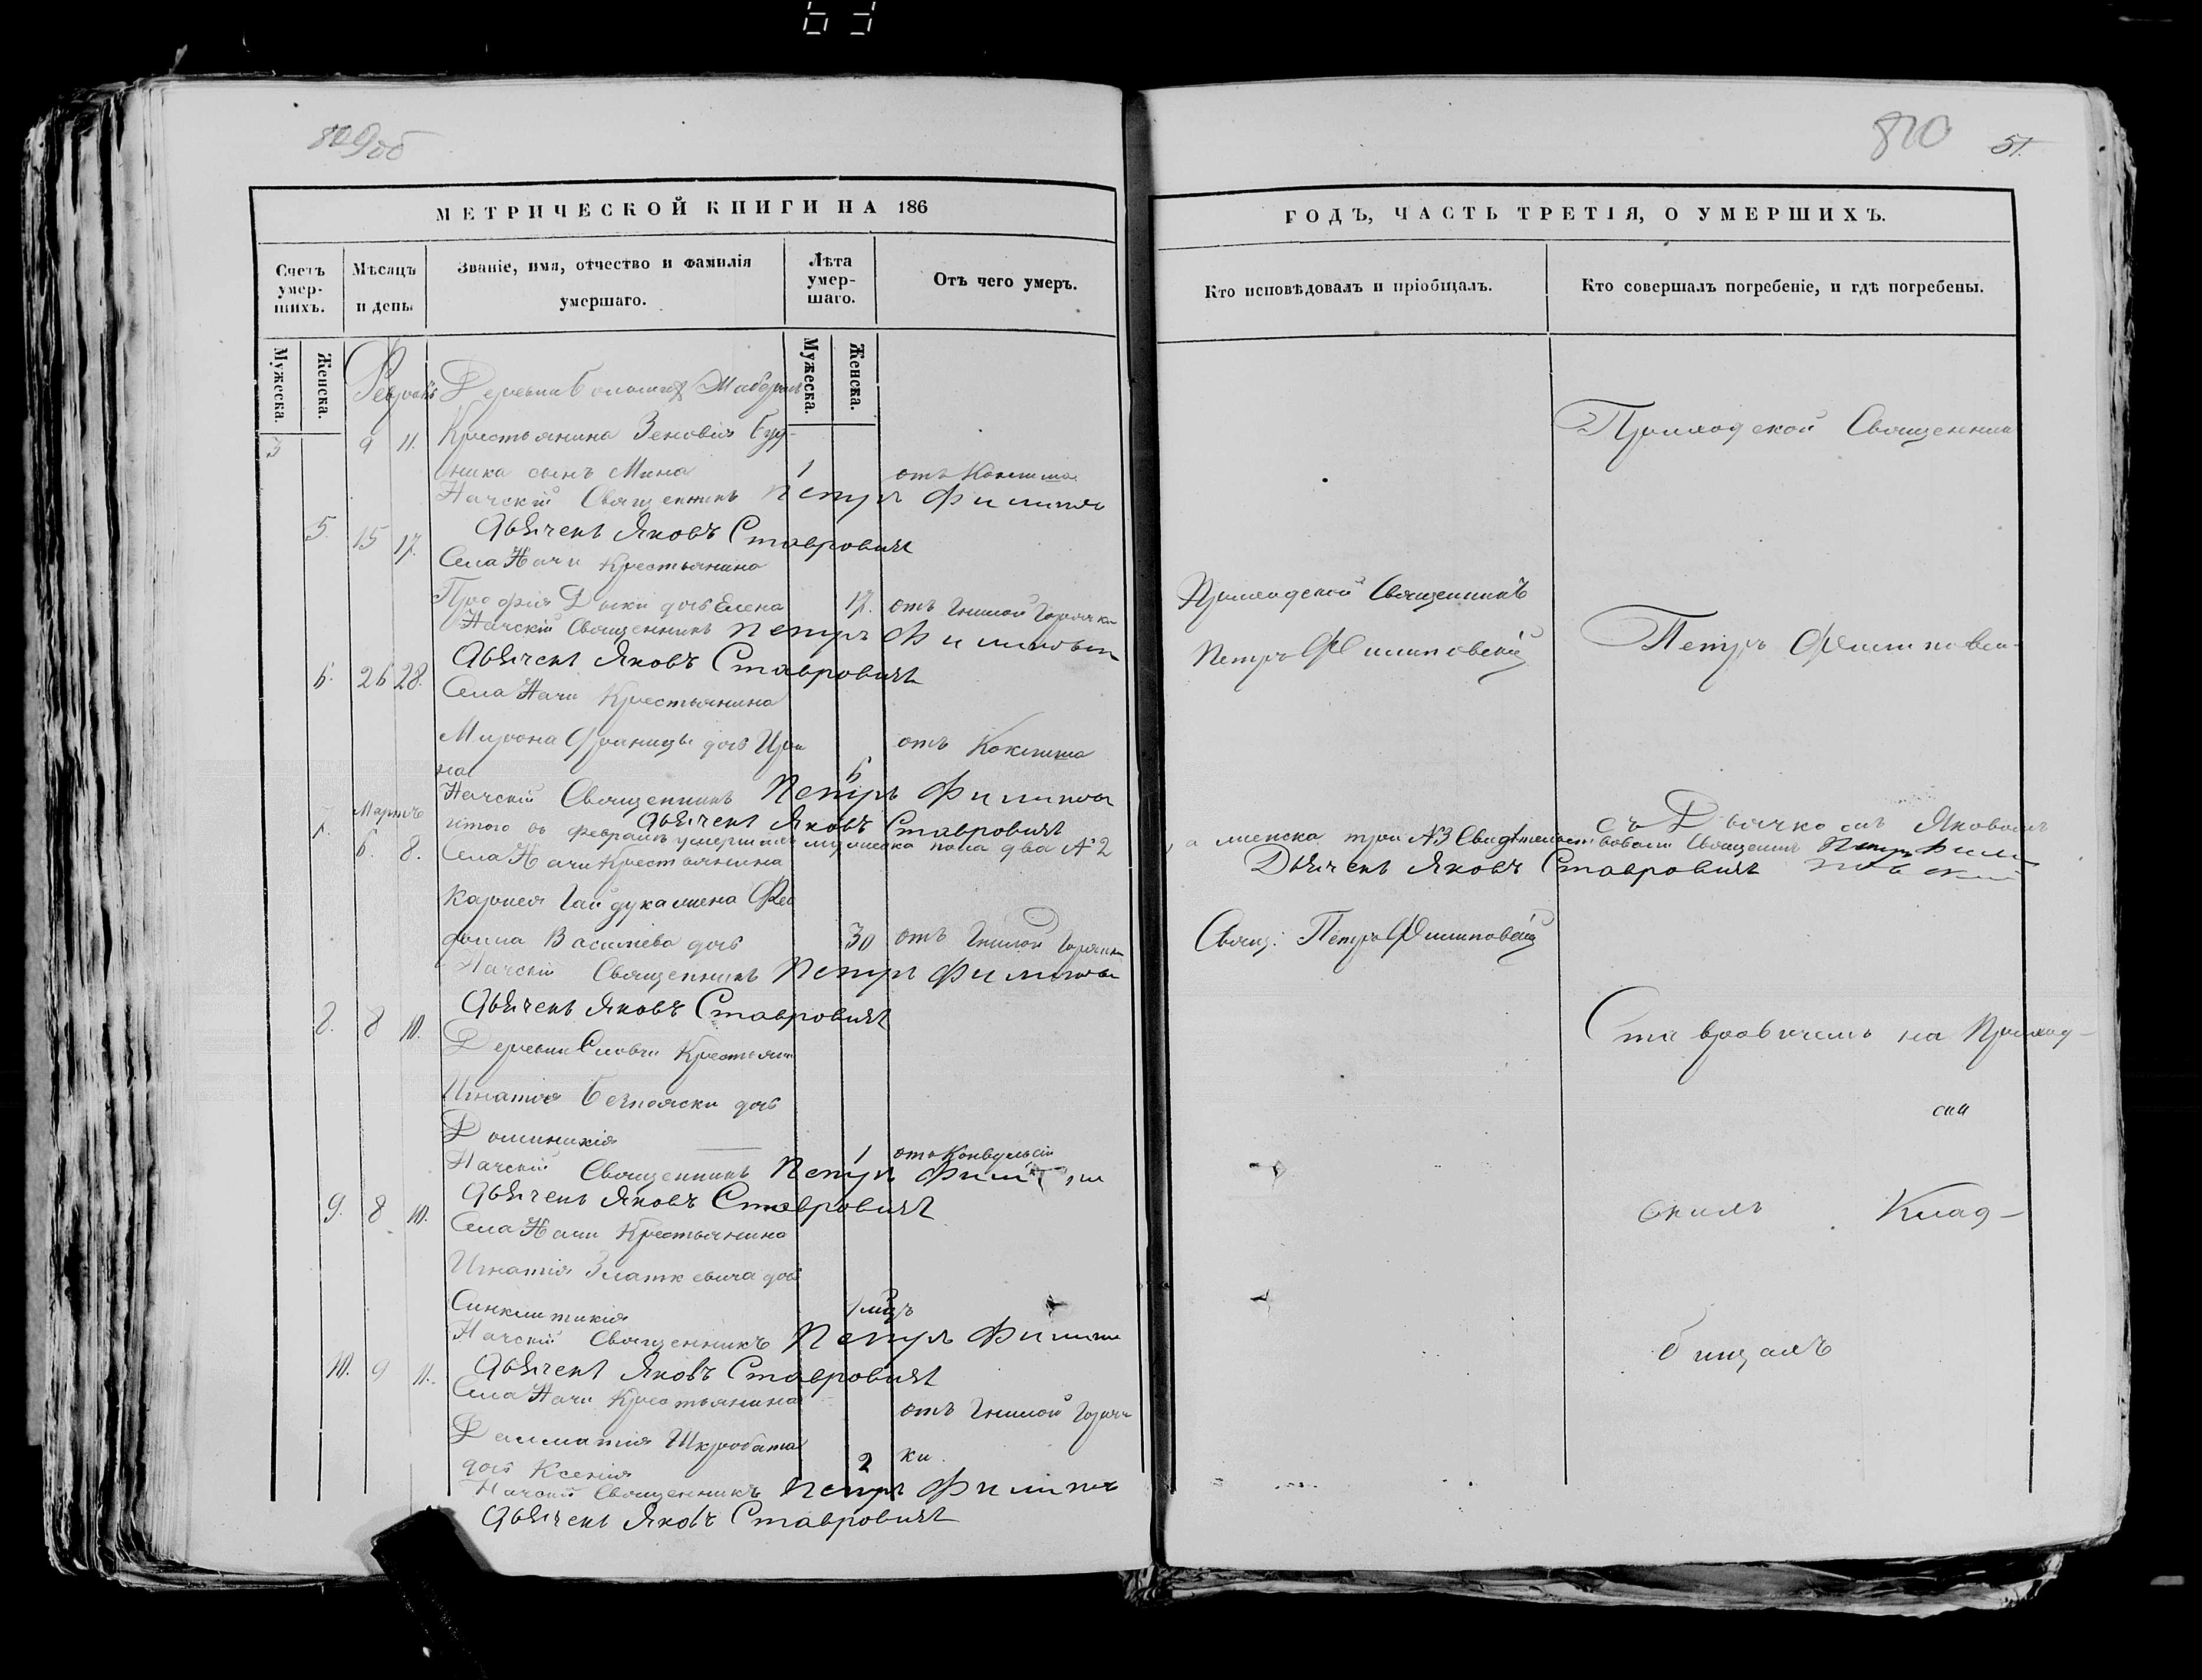 809об
МЕТРИЧЕСКОЙ КНИГИ НА 186
Счетъ умер-шихъ.
Мѣсяцъ и день.
Званіе, имя, отчество и фамилія умершаго.
Лѣта умер-шаго.
Отъ чего умеръ.
Мужеска.
Женска.
Мужеска.
Женска.
Февраль
Деревни Большой
3 9 11. Крестьянина Зеновія Буд-
ника сынъ Мина 1 отъ Коклюша
Начскій Священникъ Петръ Филипов
Дьячекъ Яковъ Ставровичъ
5. 15 17. Села Начи Крестьянина
дочь Елена 17. отъ Гнилой Горячки
Начскій Священникъ Петръ Филипов
Дьячекъ Яковъ Ставровичъ
6. 26 28. Села Начи Крестьянина
Мирона Франицы дочь Ири
на 6 отъ Коклюша
Начскій Священникъ Петръ Филипов
Дьячекъ Яковъ Ставровичъ
Мартъ
итого въ февралѣ умершихъ мужеска пола два №2
7. 6. 8. Села Начи Крестьянина
Карпея Гайдука жена Фео
Василіева дочь 30 отъ Гнилой Горячки
Начскій Священникъ Петръ Филипов
Дьячекъ Яковъ Ставровичъ
8. 8 10. Деревни Крестьян
Игнатія дочь
Доминикія 1 отъ Конвульсіи
Начскій Священникъ Петръ
Дьячекъ Яковъ Ставровичъ
9. 8 10. Села Начи Крестьянина
Игнатія Златкевича дочь
Синклитикія 1 мцъ
Начскій Священникъ Петръ Филипп
Дьячекъ Яковъ Ставровичъ
10. 9 11. Села Начи Крестьянина
отъ Гнилой Горяч
Далматія Шкробата
дочь Ксенія 2 ки.
Начскій Священникъ Петръ Филипп
Дьячекъ Яковъ Ставровичъ
810 51.
ГОДЪ, ЧАСТЬ ТРЕТІЯ, О УМЕРШИХЪ.
Кто исповѣдовалъ и пріобщалъ.
Кто совершалъ погребеніе, и гдѣ погребены.
Приходской Священник
Приходской Священникъ
Петръ Филиповскій
Петръ Филиповскі
съ Дьячкомъ Яковомъ
а женска три №3 Свидѣтельствовали Священникъ Петръ Фили
Дьячекъ Яковъ Ставровичъ повскій
Свящ: Петръ Филиповскій
Ставровичемъ на Приход-
скомъ Клад-
бищахъ